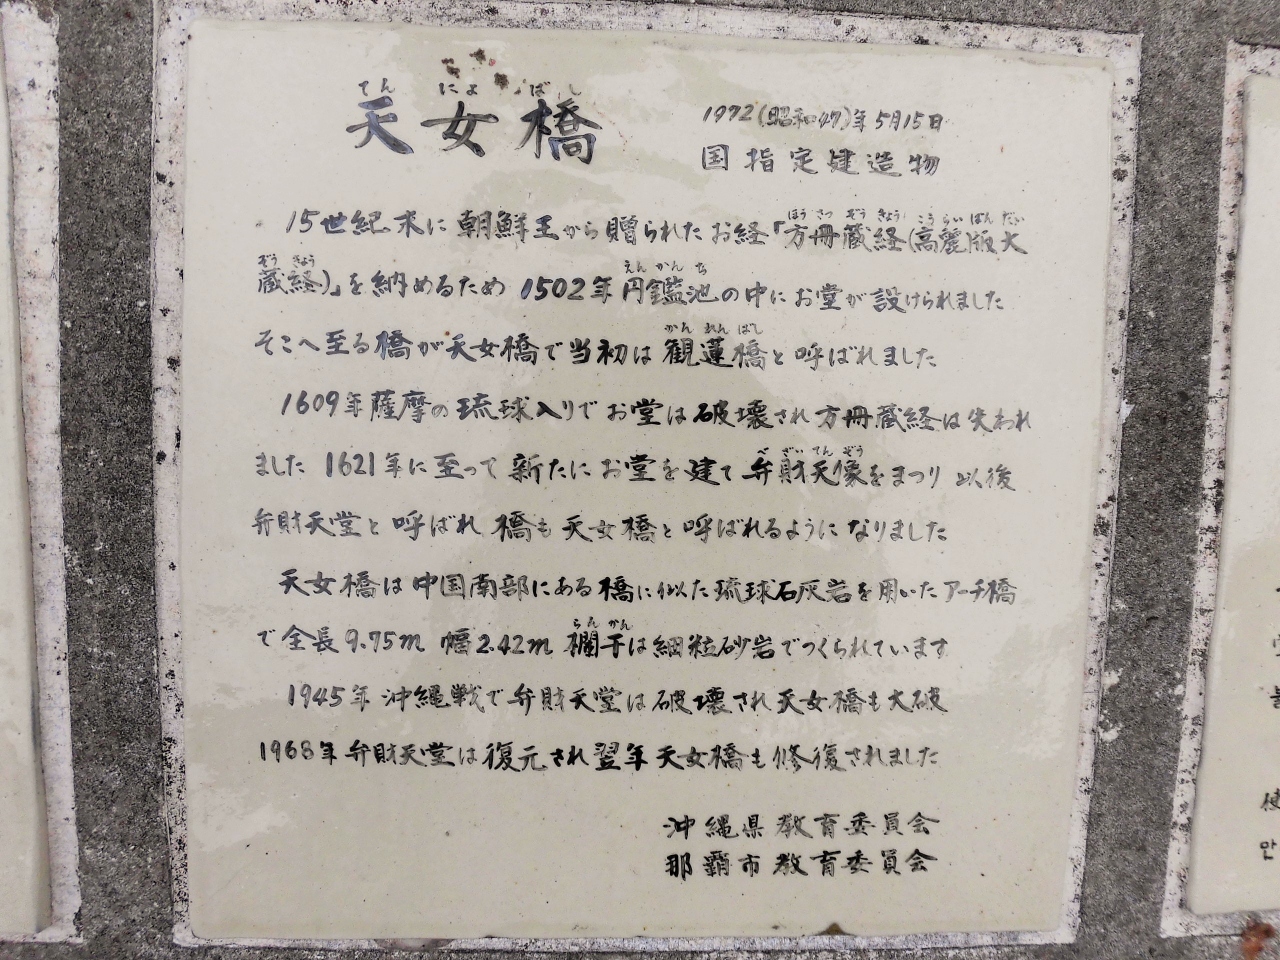 てん にょ ばし
天女橋
1972(昭和47)年5月15日
国指定建造物
15世紀末に朝鮮王から贈られたお経「方冊蔵経(高麗版大
蔵経)」を納めるため 1502年円鑑池の中にお堂が設けられました
そこへ至る橋が天女橋で当初は観蓮橋と呼ばれました
1609年薩摩の琉球入りでお堂は破壊され方冊蔵経は失われ
ました 1621年に至って新たにお堂を建て弁財天像をまつり 以後
弁財天堂と呼ばれ 橋も天女橋と呼ばれるようになりました
天女橋は中国南部にある橋に似た琉球石灰岩を用いたアーチ橋
で全長9.75m 幅2.42m 欄干は細粒砂岩でつくられています
1945年沖縄戦で弁財天堂は破壊され天女橋も大破
1968年弁財天堂は復元され翌年天女橋も修復されました
沖縄県教育委員会
那覇市教育委員会